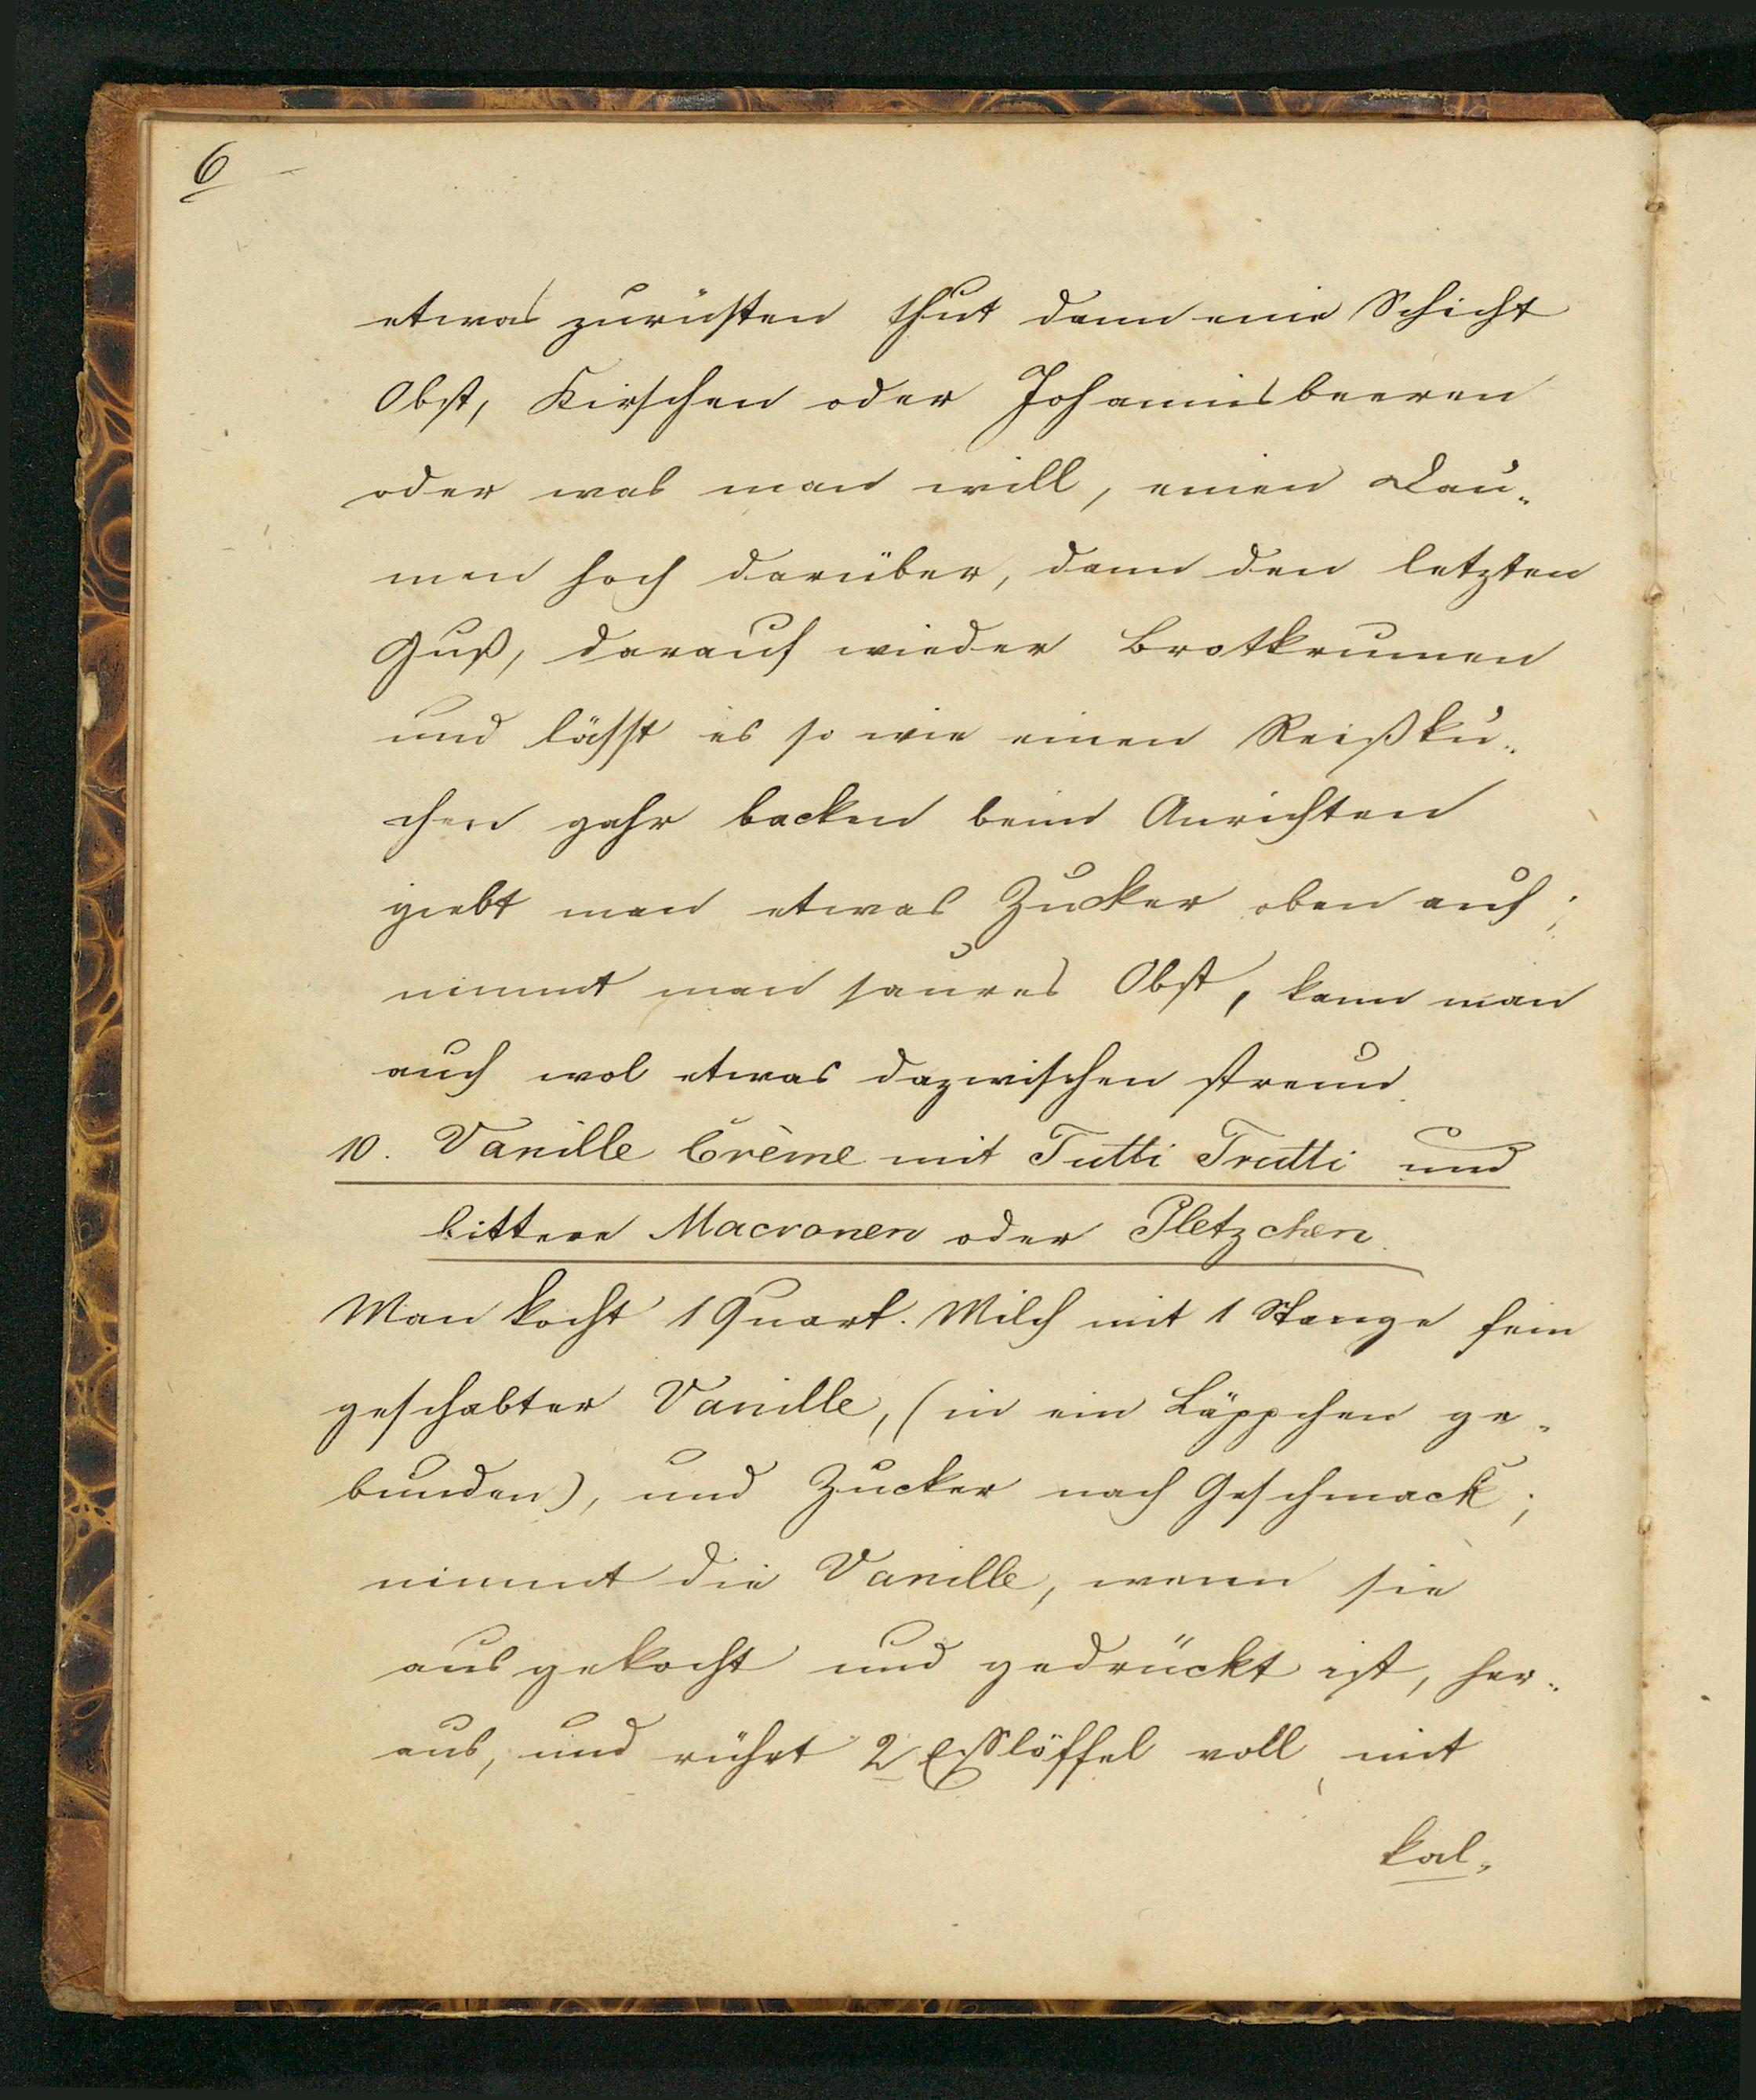 6
etwas zurüsten thut dann eine Schicht
Obst, Kirschen oder Johannisbeeren
oder was man will, einen Dau„
men hoch darüber, dann den letzten
Guß, darauf wieder Brotkrumen
und lässt es so wie einen Reißku„
chen gahr backen beim Anrichten
giebt man etwas Zucker oben auf;
nimmt man saures Obst, kann man
auch wol etwas dazwischen streun.
10. Vanille Crème mit Tutti Trutti und
bittere Macronen oder Pletzchen.
Man kocht 1 Quart. Milch mit 1 Stange fein
geschabter Vanille, (in ein Läppchen ge„
bunden), und Zucker nach Geschmack;
nimmt die Vanille, wenn sie
ausgekocht und gedrückt ist, her„
aus, und rührt 2 Esslöffel voll mit
kal„